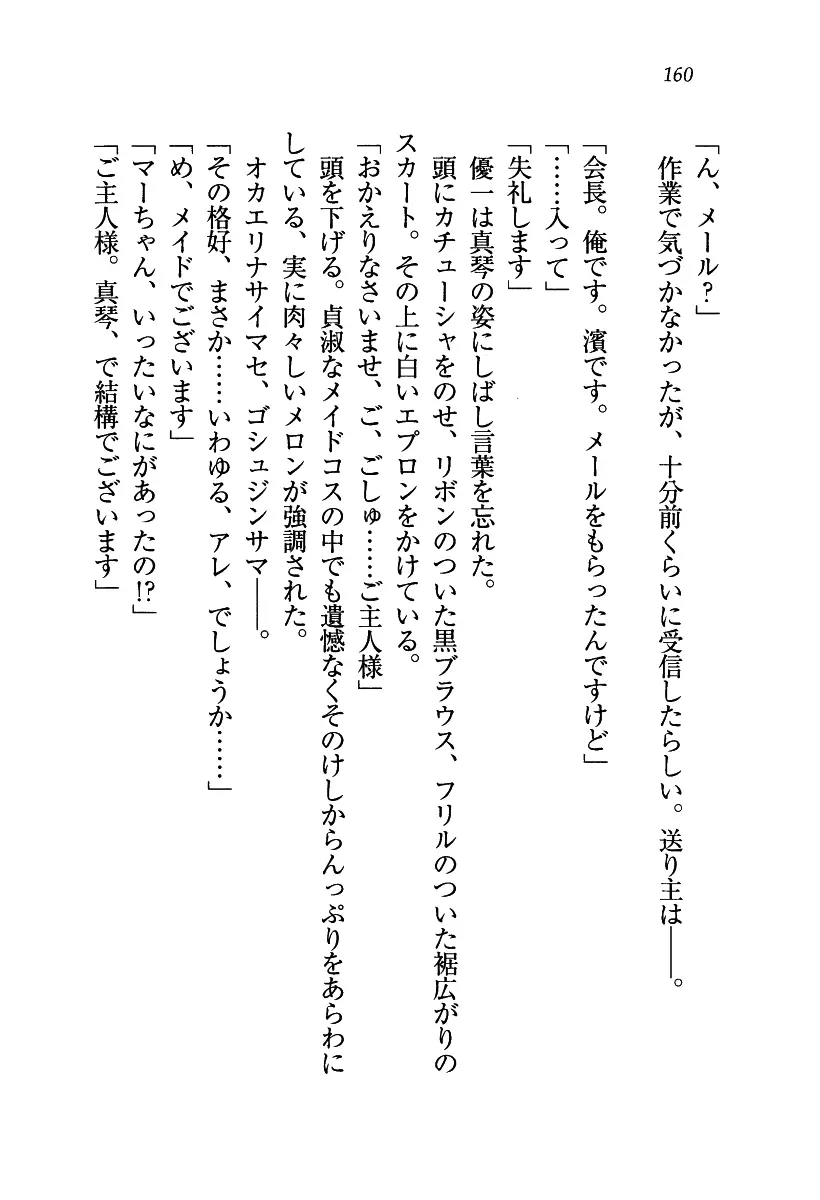 160
「ん、メール？」
作業で気づかなかったが、十分前くらいに受信したらしい。送り主は――。
「会長。俺です。濱です。メールをもらったんですけど」
「……入って」
「失礼します」
優一は真琴の姿にしばし言葉を忘れた。
頭にカチューシャをのせ、リボンのついた黒ブラウス、フリルのついた裾広がりの
スカート。その上に白いエプロンをかけている。
「おかえりなさいませ、ご、ごしゅ……ご主人様」
頭を下げる。貞淑なメイドコスの中でも遺憾なくそのけしからんっぷりをあらわに
している、実に肉々しいメロンが強調された。
オカエリナサイマセ、ゴシュジンサマ――。
「その格好、まさか……いわゆる、アレ、でしょうか……」
「め、メイドでございます」
「マーちゃん、いったいなにがあったの!?」
「ご主人様。真琴、で結構でございます」